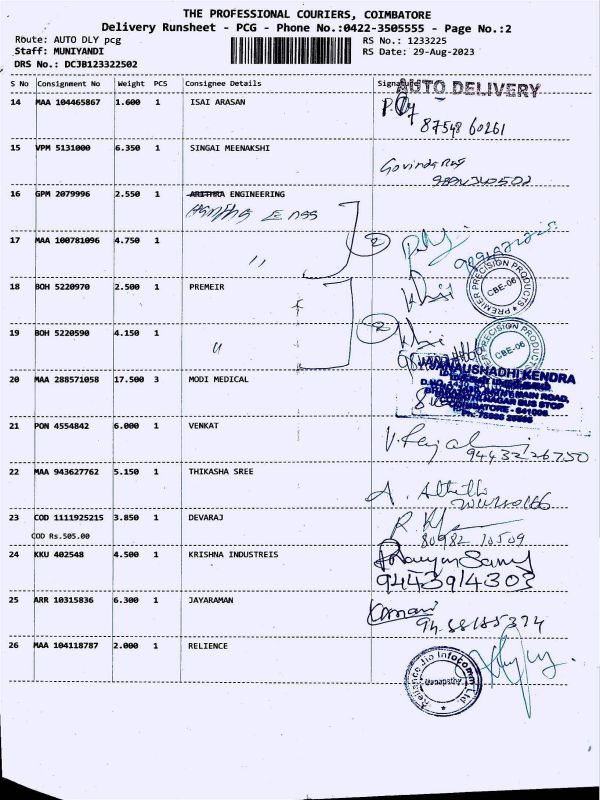 THE PROFESSIONAL COURIERS, COIMBATORE
Delivery Runsheet - PCG - Phone No.:0422-3505555 - Page No.:2
Route: AUTO DLY pcg RS No.: 1233225
Staff: MUNIYANDI RS Date: 29-Aug-2023
DRS No.: DCJB123322502
S No Consignment No Weight PCS Consignee Details
AUTO DELIVERY
14 MAA 104465867 1.600 1 ISAI ARASAN
87548 60261
15 VPM 5131000 6.350 1 SINGAI MEENAKSHI
Govinda Raj
16 GPM 2079996 2.550 1 ARITHRA ENGINEERING
17 MAA 100781096 4.750 1 "
2
18 BOH 5220970 2.500 1 PREMEIR
PREMIER PRECISION PRODUCTS CBE-06
19 BOH 5220590 4.150 1 "
2
PRECISION PRODUCTS CBE-06
20 MAA 288571058 17.500 3 MODI MEDICAL
JANAUSHADHI KENDRA
MAIN ROAD,
BUS STOP
COIMBATORE - 641006
21 PON 4554842 6.000 1 VENKAT
94432 26750
22 MAA 943627762 5.150 1 THIKASHA SREE
23 COD 1111925215 3.850 1 DEVARAJ
COD Rs.505.00
80982 10509
24 KKU 402548 4.500 1 KRISHNA INDUSTREIS
9443914303
25 ARR 10315836 6.300 1 JAYARAMAN
26 MAA 104118787 2.000 1 RELIENCE
Reliance Jio Infocomm Ltd.
Ganapathy